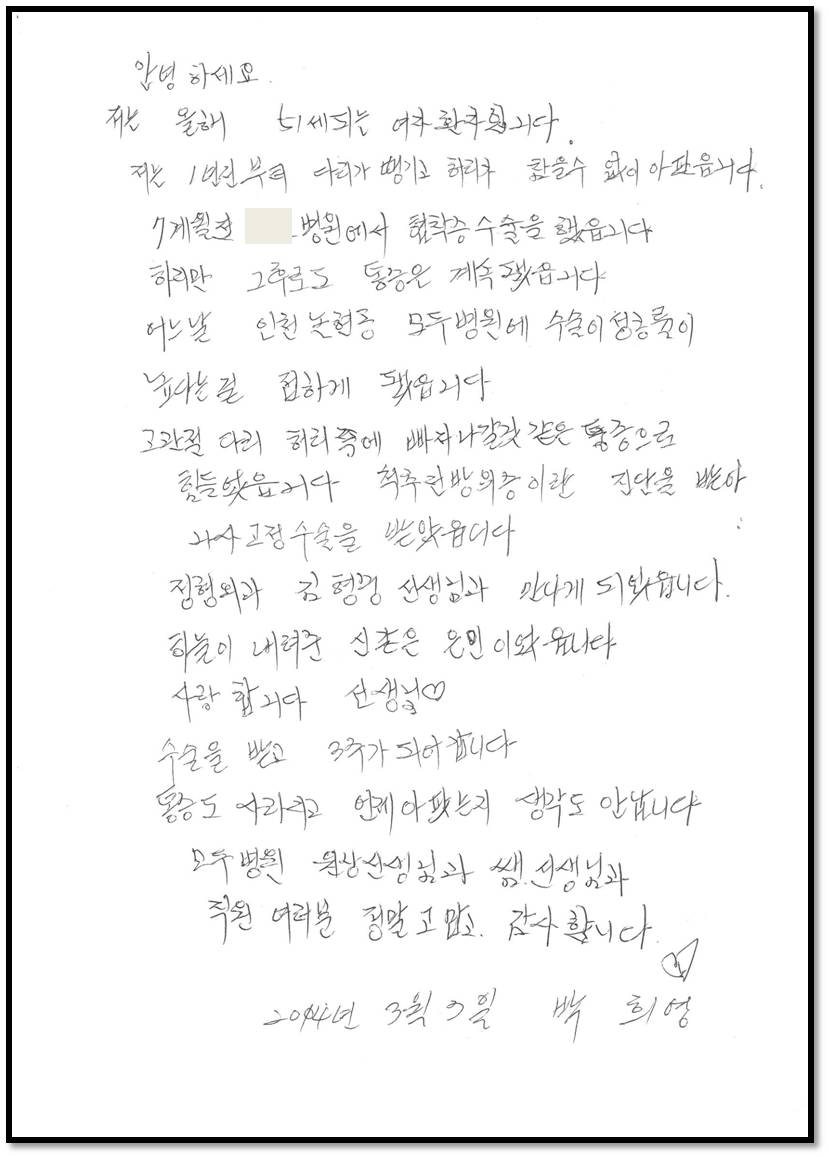 안녕하세요.
저는 올해 51세되는 여자환자입니다.
저는 1년전부터 다리가 땡기고 허리가 참을수 없이 아팠읍니다.
7개월전 병원에서 협착증수술을 했읍니다
하지만 그후로도 통증은 계속됐읍니다
어느날 인천 논현동 모두병원에 수술이 성공률이
높다는걸 접하게 됐읍니다
고관절 다리 허리쪽에 빠져나갈것 같은 통증으로
힘들었읍니다 척추전방위증이란 진단을 받아
나사고정수술을 받았읍니다
정형외과 김형 선생님과 만나게 되었읍니다.
하늘이 내려준 신촌은 은인이였읍니다
사랑합니다 선생님♡
수술을 받고 3주가 되어갑니다
통증도 사라지고 언제아팠는지 생각도 안납니다
모두병원 원장선생님과 쌤.선생님과
직원 여러분 정말고맙고. 감사합니다.
2014년 3월 3일 박희영